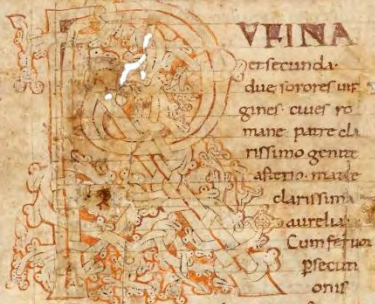 RVFINA
et secunda·
due sorores uir
gines· ciues ro
mane· patre cla
rissimo genite
asterio· matre
clarissima
aurelia·
Cum feruor
persecuti
onis